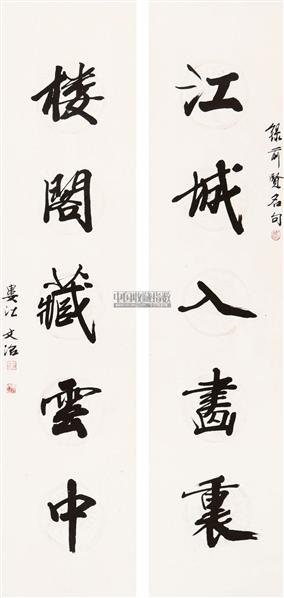 錄前賢名句
江城入畫裏
楼閣藏雲中
婁江文治
中国收藏指数